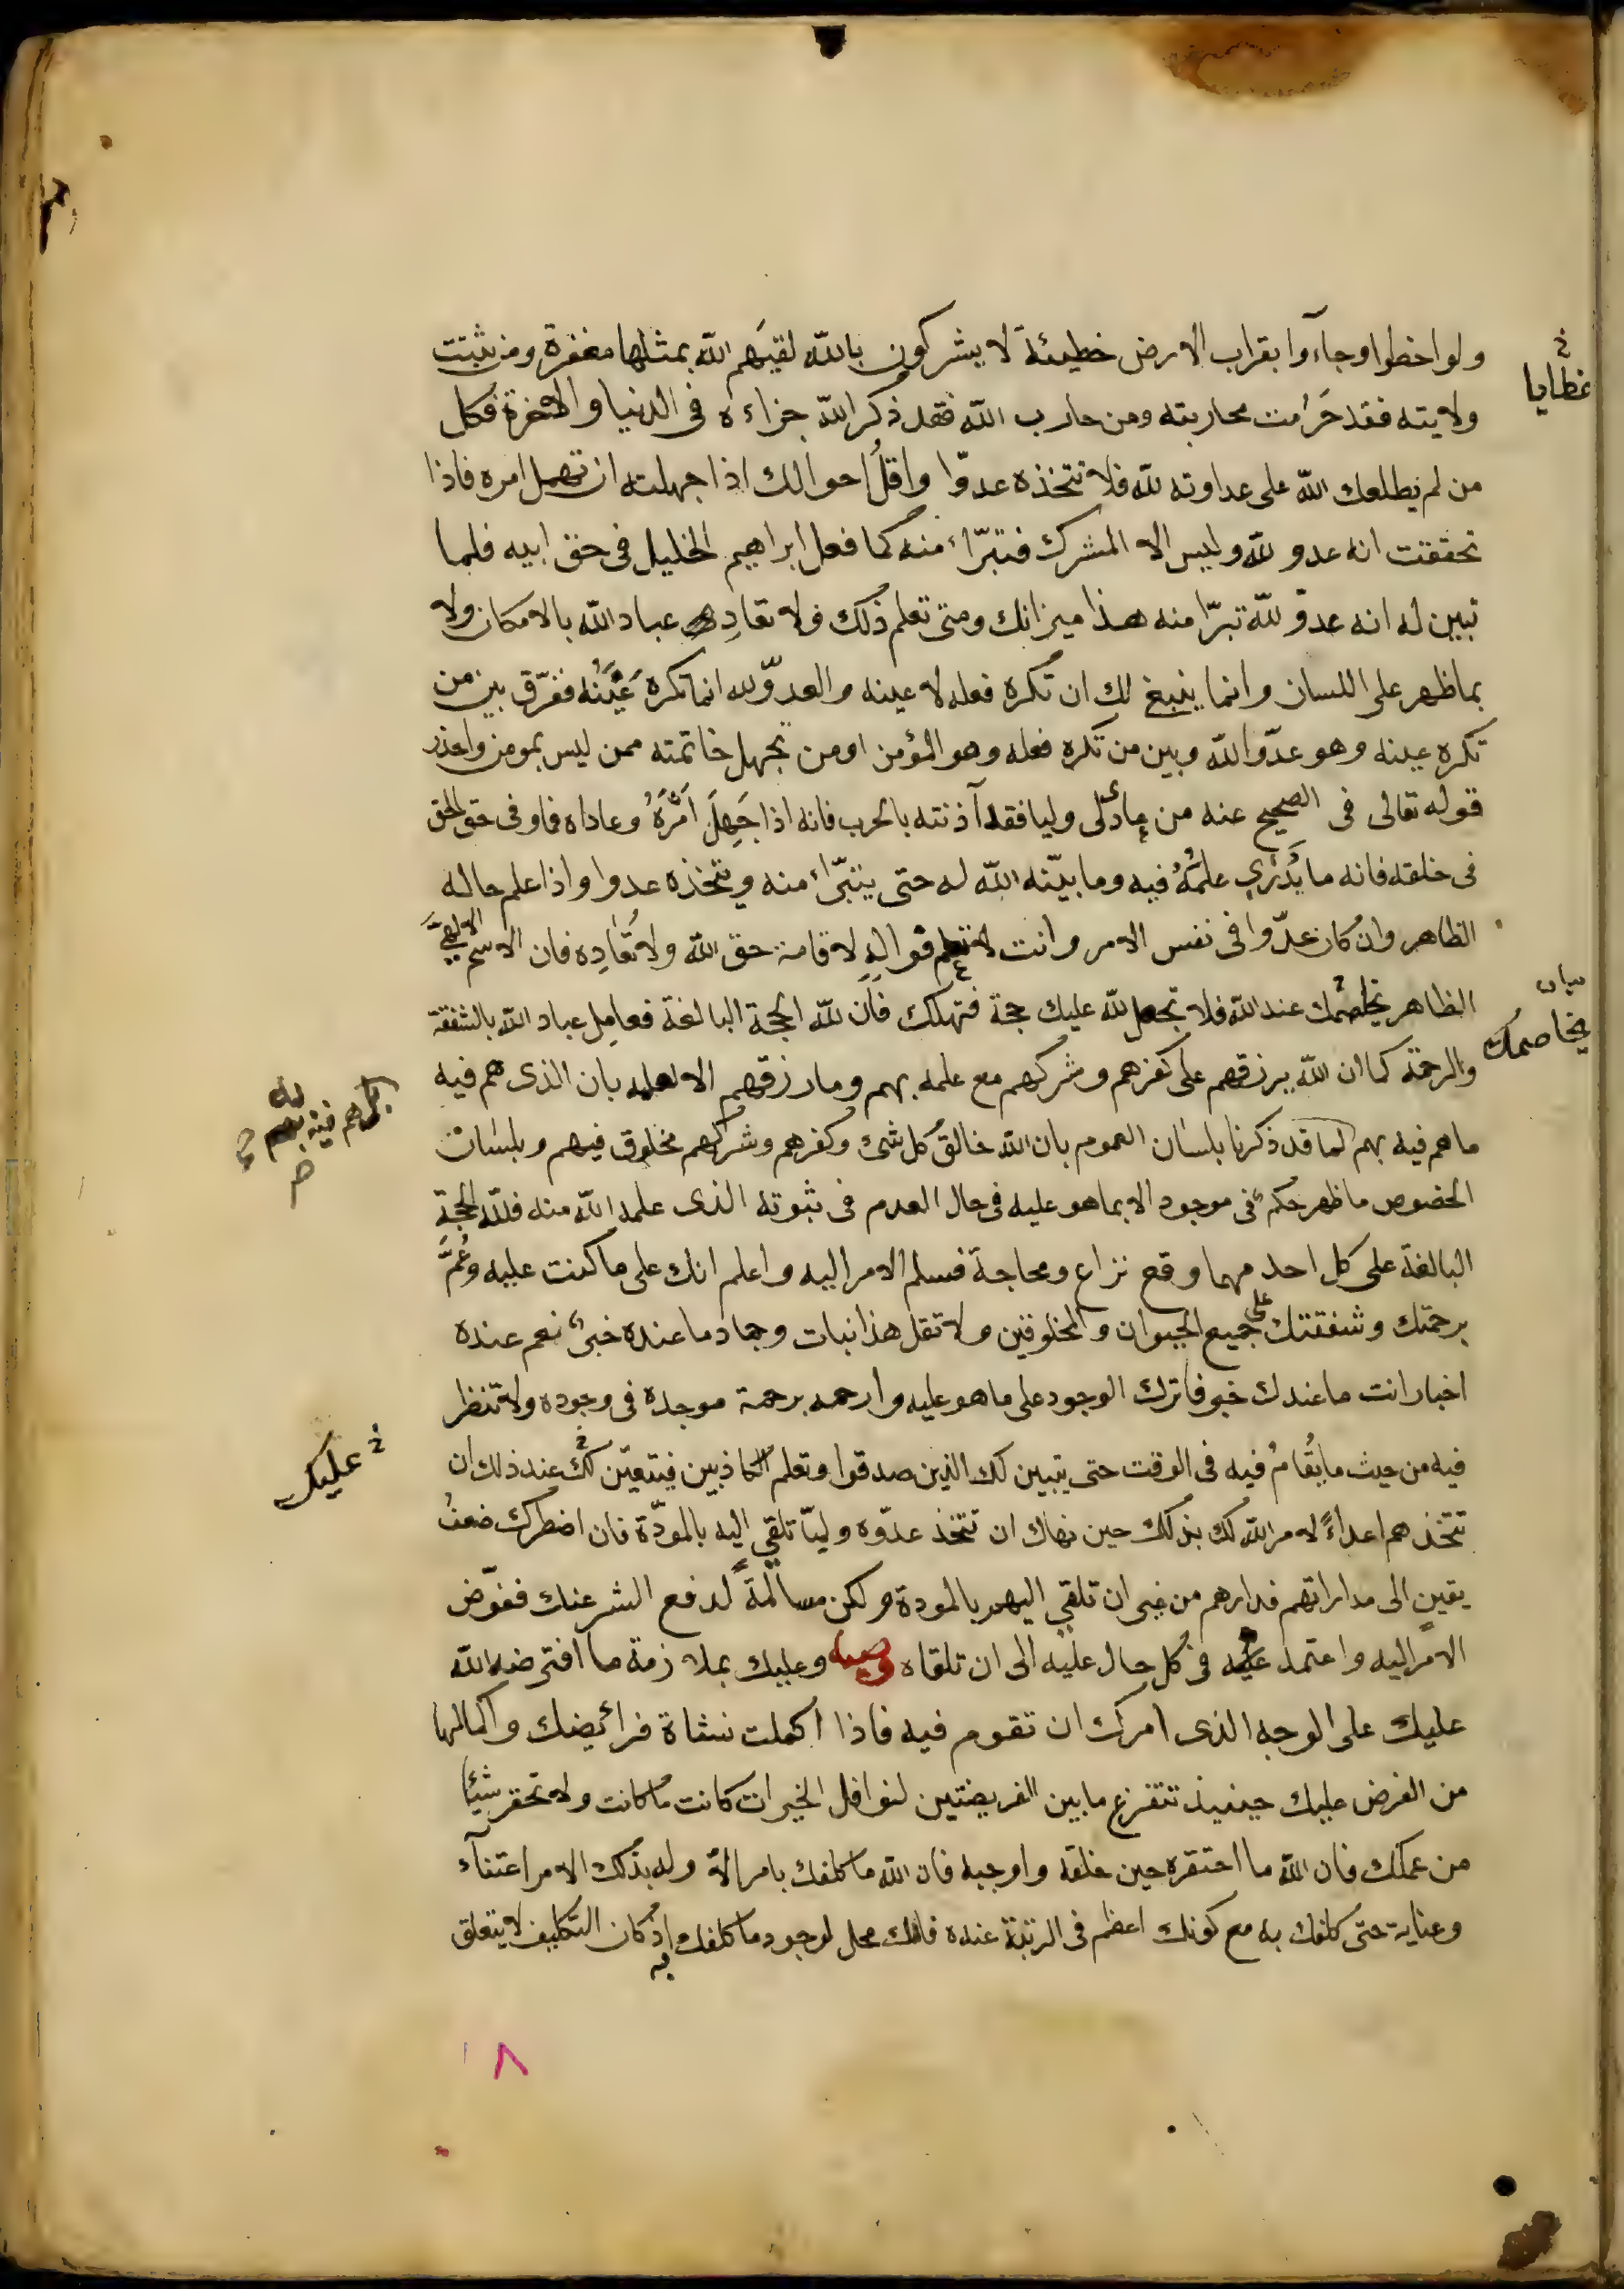 ولو اخطوا وجآءوا بقراب الارض خطيئة لا يشركون بالله لقيهم الله بمثلها مغفرة ومن ثبتت
خ خطايا
ولايته فقد حَرُمت محاربته ومن حارب الله فقد ذكر الله جزاءه فى الدنيا والاخرة فكل
من لم يطلعك الله على عداوته لله فلا تتخذه عدوّا واقلُ احوالك اذا جهلته ان تهمل امره فاذا
تحققت انه عدو لله وليس الا المشرك فتبرّاء منه كما فعل ابراهيم الخليل فى حق ابيه فلما
تبين له انه عدوّ لله تبرّا منه هذا ميزانك ومتى تعلم ذلك ولا تعادِ عباد الله بالامكان ولا
بما ظهر على اللسان وانما ينبغ لك ان تكره فعله لا عينه والعدوّ لله انما تكره عَيْنُه ففرّق بين من
تكره عينه وهو عدّو الله وبين من تكره فعله وهو المؤمن او من تجهل خاتمته ممن ليس بمومن واحذر
قوله تعالى فى الصحيح عنه من عادٔى لى وليا فقد آذنته بالحرب فانه اذا جَهِلَ امْرَهُ وعاداه فما وفى حق الحق
فى خلقه فانه ما يَدْرِي علمُهُ فيه وما بيّنه الله له حتى يتبرّاء منه ويتخذه عدوا واذا علم حاله
الظاهر وان كان عدّوا فى نفس الامر وانت لا تعلم فوالِهِ لاقامة حق الله ولا تُعَادِه فان الاسم الالهىَّ
الظاهر يخاصمك عند الله فلا تجعل لله عليك حجة فتهلك فان لله الحجة البالغة فعامِل عباد الله بالشفقة
بيان يخاصمك
والرحمة كما ان الله يرزقهم على كفرهم وشركهم مع علمه بهم وما رزقهم الا لعلمه بان الذى هم فيه
ما هم فيه بهم لما قد ذكرنا بلسان العموم بان الله خالقُ كل شئ وكفرهم وشركهم مخلوق فيهم وبلسان
الخصوص ما ظهر حكم فى موجود الا بما هو عليه فى حال العدم فى ثبوته الذى علمه الله منه فلله الحجة
البالغة على كل احد مهما وقع نزاع ومحاجة فسلم الامر اليه واعلم انك على ما كنت عليه وعُمَّ
برحمتك وشفقتك على جميع الحيوان والمخلوقين ولا تقل هذا نبات وجماد ما عنده خبر نعم عنده
اخبار انت ما عندك خبر فاترك الوجود على ما هو عليه وارحمه برحمة موجده فى وجوده ولا تنظر
فيه من حيث ما يُقَامُ فيه فى الوقت حتى يتبين لك الذين صدقوا وتعلم الكاذبين فيتعيّن لك عند ذلك ان
خ عليك
تتخذهم اعداءً لامر الله لك بذلك حين نهاك ان تتخذ عدوّه وليّا تلقي اليه بالمودّة فان اضطرك ضعفُ
يقينٍ الى مداراتهم فدارهم من غير ان تلقي اليهم بالمودة ولكن مسالمةً لدفع الشر عنك ففوّض
الامر اليه واعتمد فى كل حال عليه الى ان تلقاه وصية وعليك بملازمة ما افترضه الله
عليك على الوجه الذى امرك ان تقوم فيه فاذا اكملت نشاة فرائضك واكمالها
من الفرض عليك حينئيذ تتفرغ ما بين الفريضتين لنوافل الخيرات كانت ما كانت ولا تحقر شيئا
من عملك فان الله ما احتقره حين خلقه واوجبه فان الله ما كلفك بامر الا وله بذلك الامر اعتنآء
وعناية حتى كلفك به مع كونك اعظم فى الرتبة عنده فانك محل لوجود ما كلفك به اذ كان التكليف لا يتعلق
٨